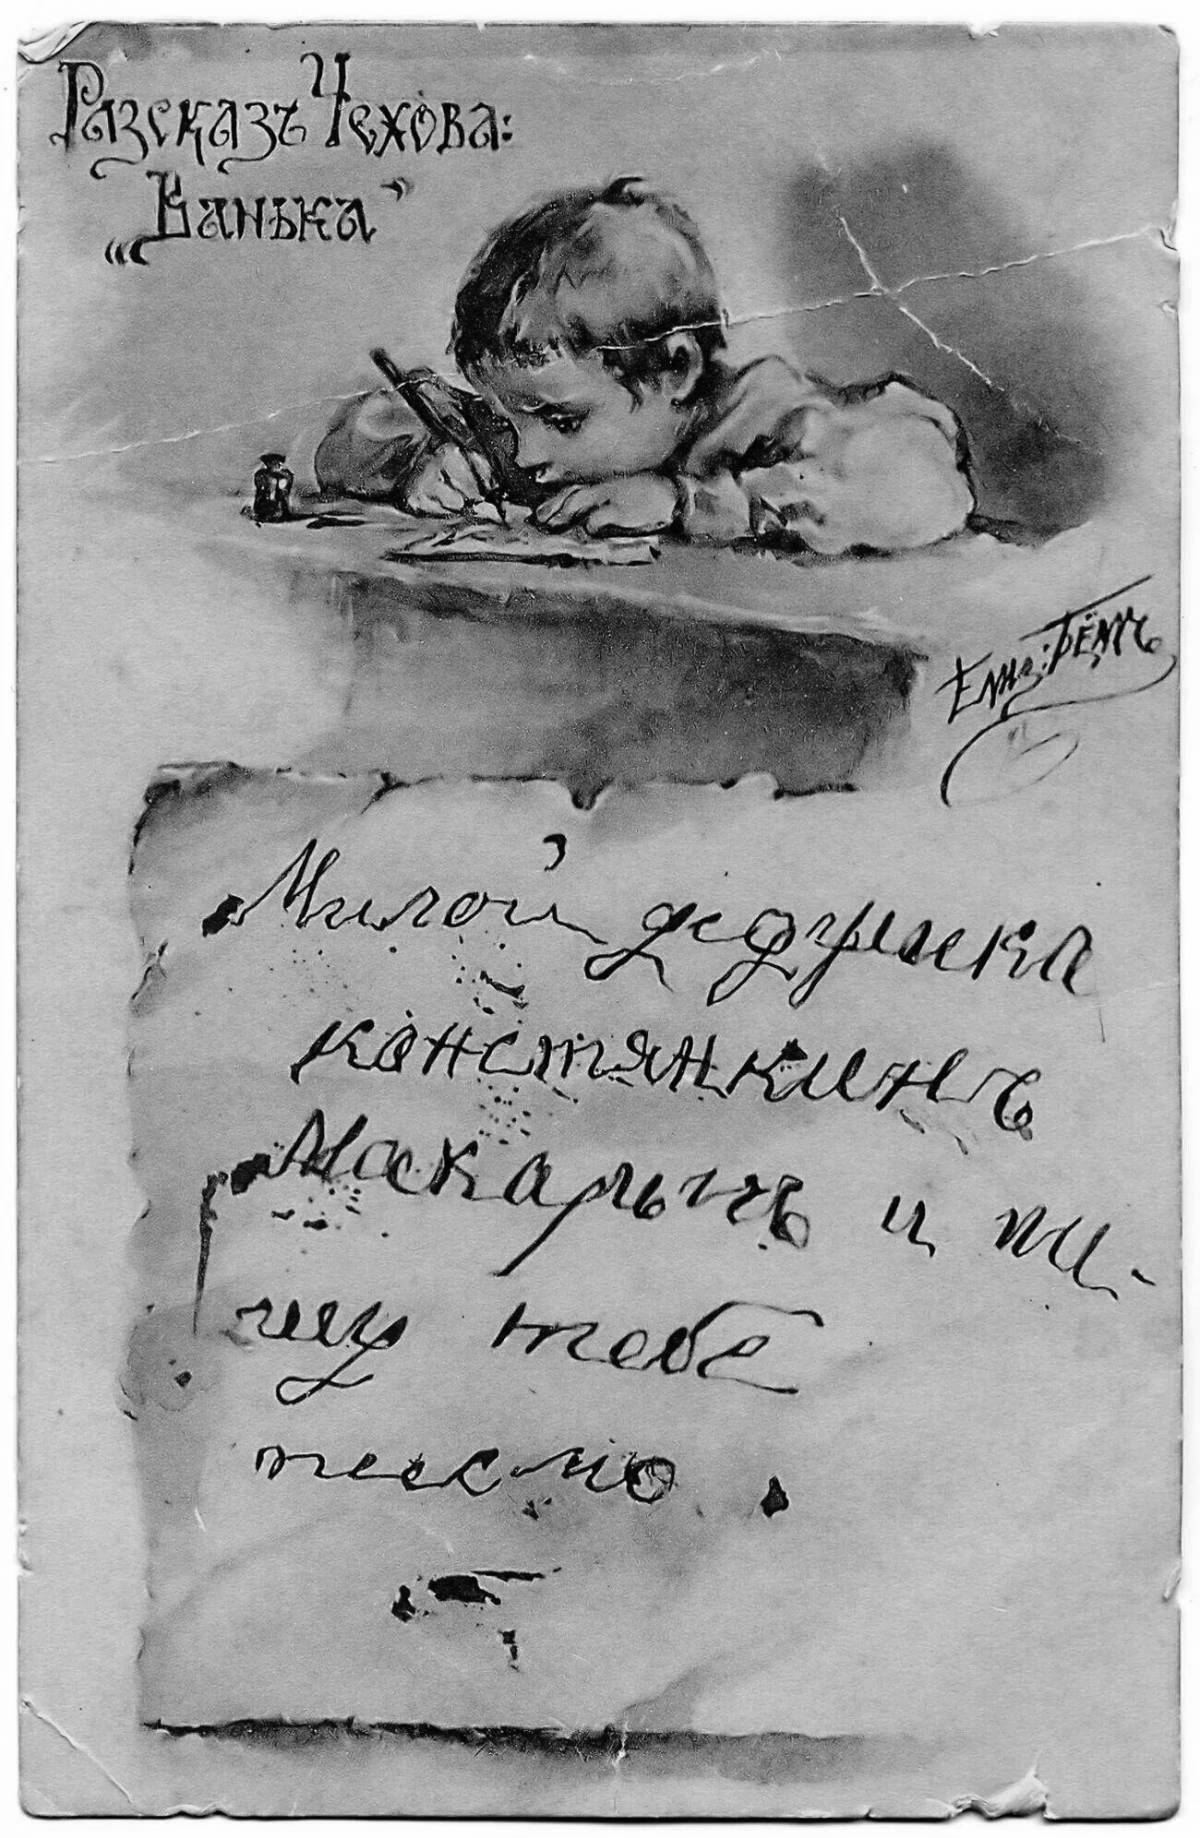 Разсказъ Чехова:
„Ванька”
Елиз: Бёмъ
Милой дедушка
констянкинъ
Макарычъ и пи-
шу тебѣ
писмо.